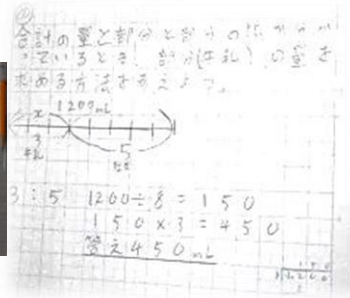 合計の量と部分と部分の比がわか
っているとき、部分(牛乳)の量を
求める方法を考えよう。
x 1200mL
3 5
牛乳
3:5 1200÷8=150
150×3=450
答え450mL